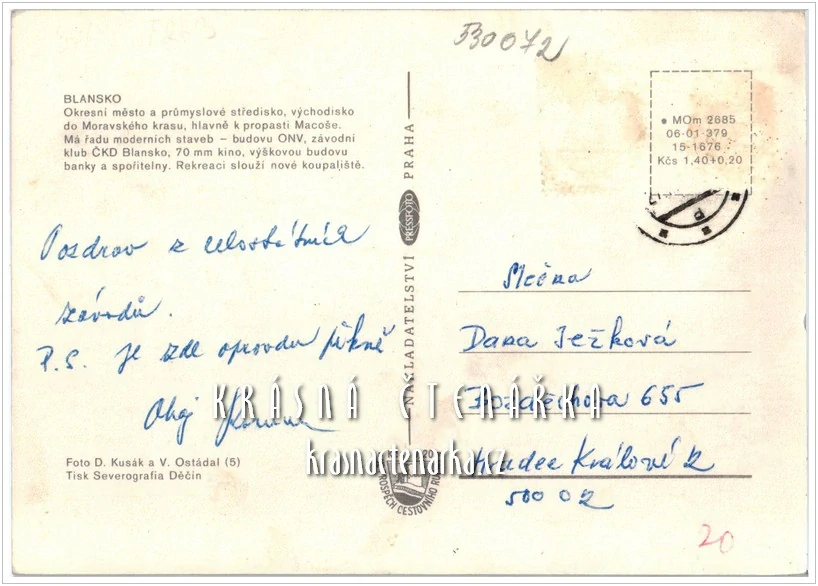 530072
BLANSKO
Okresní město a průmyslové středisko, východisko
do Moravského krasu, hlavně k propasti Macoše.
Má řadu moderních staveb – budovu ONV, závodní
klub ČKD Blansko, 70 mm kino, výškovou budovu
banky a spořitelny. Rekreaci slouží nové koupaliště.
• MOm 2685
06-01-379
15-1676
Kčs 1,40+0,20
Pozdrav z celostátních
závodů.
P.S. je zde opravdu pěkně
Ahoj
Foto D. Kusák a V. Ostádal (5)
Tisk Severografia Děčín
NAKLADATELSTVÍ PRESSFOTO PRAHA
Slečna
Dana Ježková
655
Hradec Králové 2
500 02
KRÁSNÁ ČTENÁŘKA
krasnactenarka.cz
20